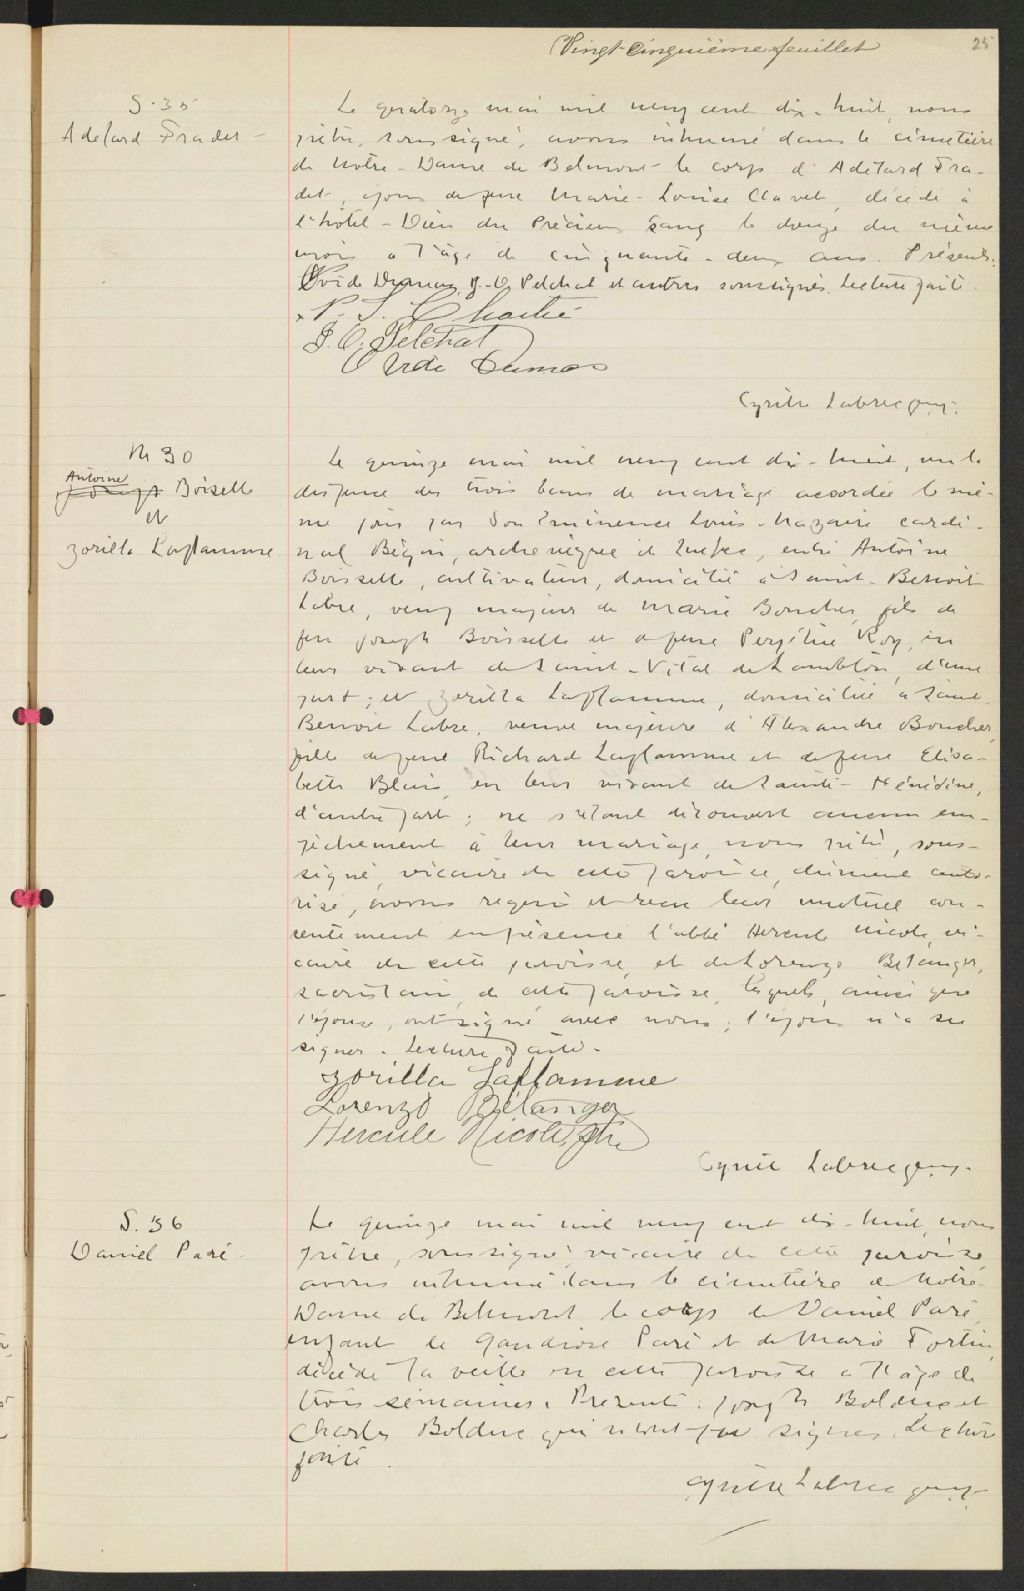 Vingt-cinquième feuillet
25
S. 35
Adelard Fradet
Le quatorze mai mil neuf cent dix-huit, nous
prêtre, soussigné, avons inhumé dans le cimetière
de Notre-Dame de Belmont le corps d'Adelard Fra-
det, époux de feue Marie-Louise Clavet, décédé à
l'hôtel-Dieu du Précieux Sang le douze du même
mois à l'âge de cinquante-deux ans. Présents:
Ovide Dumas, J.-O. Pelchat et autres soussignés. Lecture faite.
J. O. Pelchat
Ovide Dumas
Cyrille Labrecque, ptre.
M 30
Antoine
Joseph Boiselle
et
Zorilla Laflamme
Le quinze mai mil neuf cent dix-huit, vu la
dispense des trois bans de mariage accordée le mê-
me jour par Son Eminence Louis-Nazaire cardi-
nal Bégin, archevêque de Québec, entre Antoine
Boisselle, cultivateur, domicilié à Saint-Benoit
Labre, veuf majeur de Marie Boucher, fils de
feu Joseph Boisselle et de feue Perpétue Roy, en
leur vivant de Saint-Vital de Lambton, d'une
part; et Zorilla Laflamme, domiciliée à Saint
Benoit Labre, veuve majeure d'Alexandre Boucher,
fille de feu Richard Laflamme et de feue Elisa-
beth Blais, en leur vivant de Sainte-Hénédine,
d'autre part; ne s'étant découvert aucun em-
pêchement à leur mariage, nous prêtre, sous-
signé, vicaire de cette paroisse, dûment auto-
risé, avons requis et reçu leur mutuel con-
sentement en présence l'abbé Hercule Nicole, vi-
caire de cette paroisse, et de Lorenzo Bélanger,
sacristain de cette paroisse, lesquels, ainsi que
l'épouse, ont signé avec nous; l'époux n'a su
signer. Lecture faite.
Zorilla Laflamme
Lorenzo Bélanger
Hercule Nicole, ptre
Cyrille Labrecque, ptre.
S. 36
Daniel Paré
Le quinze mai mil neuf cent dix-huit, nous
prêtre, soussigné, vicaire de cette paroisse
avons inhumé dans le cimetière de Notre-
Dame de Belmont le corps de Daniel Paré,
enfant de Gaudiose Paré et de Marie Fortin,
décédé la veille en cette paroisse à l'âge de
trois semaines. Présents: Joseph Bolduc et
Charles Bolduc qui n'ont pu signer. Lecture
faite.
Cyrille Labrecque, ptre